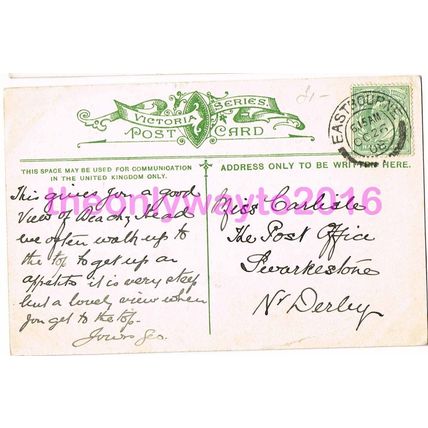 VICTORIA SERIES
POST CARD
£1-
EASTBOURNE
6.15AM
OC 26
06
THIS SPACE MAY BE USED FOR COMMUNICATION
IN THE UNITED KINGDOM ONLY.
ADDRESS ONLY TO BE WRITTEN HERE.
theonlywayts2016
This gives you a good
View of Beachy Head
we often walk up to
the top to get up an
appetite it is very steep
but a lovely view when
you get to the top.
Yours Geo.
Miss Carlisle
The Post Office
Swarkestone
Nr Derby